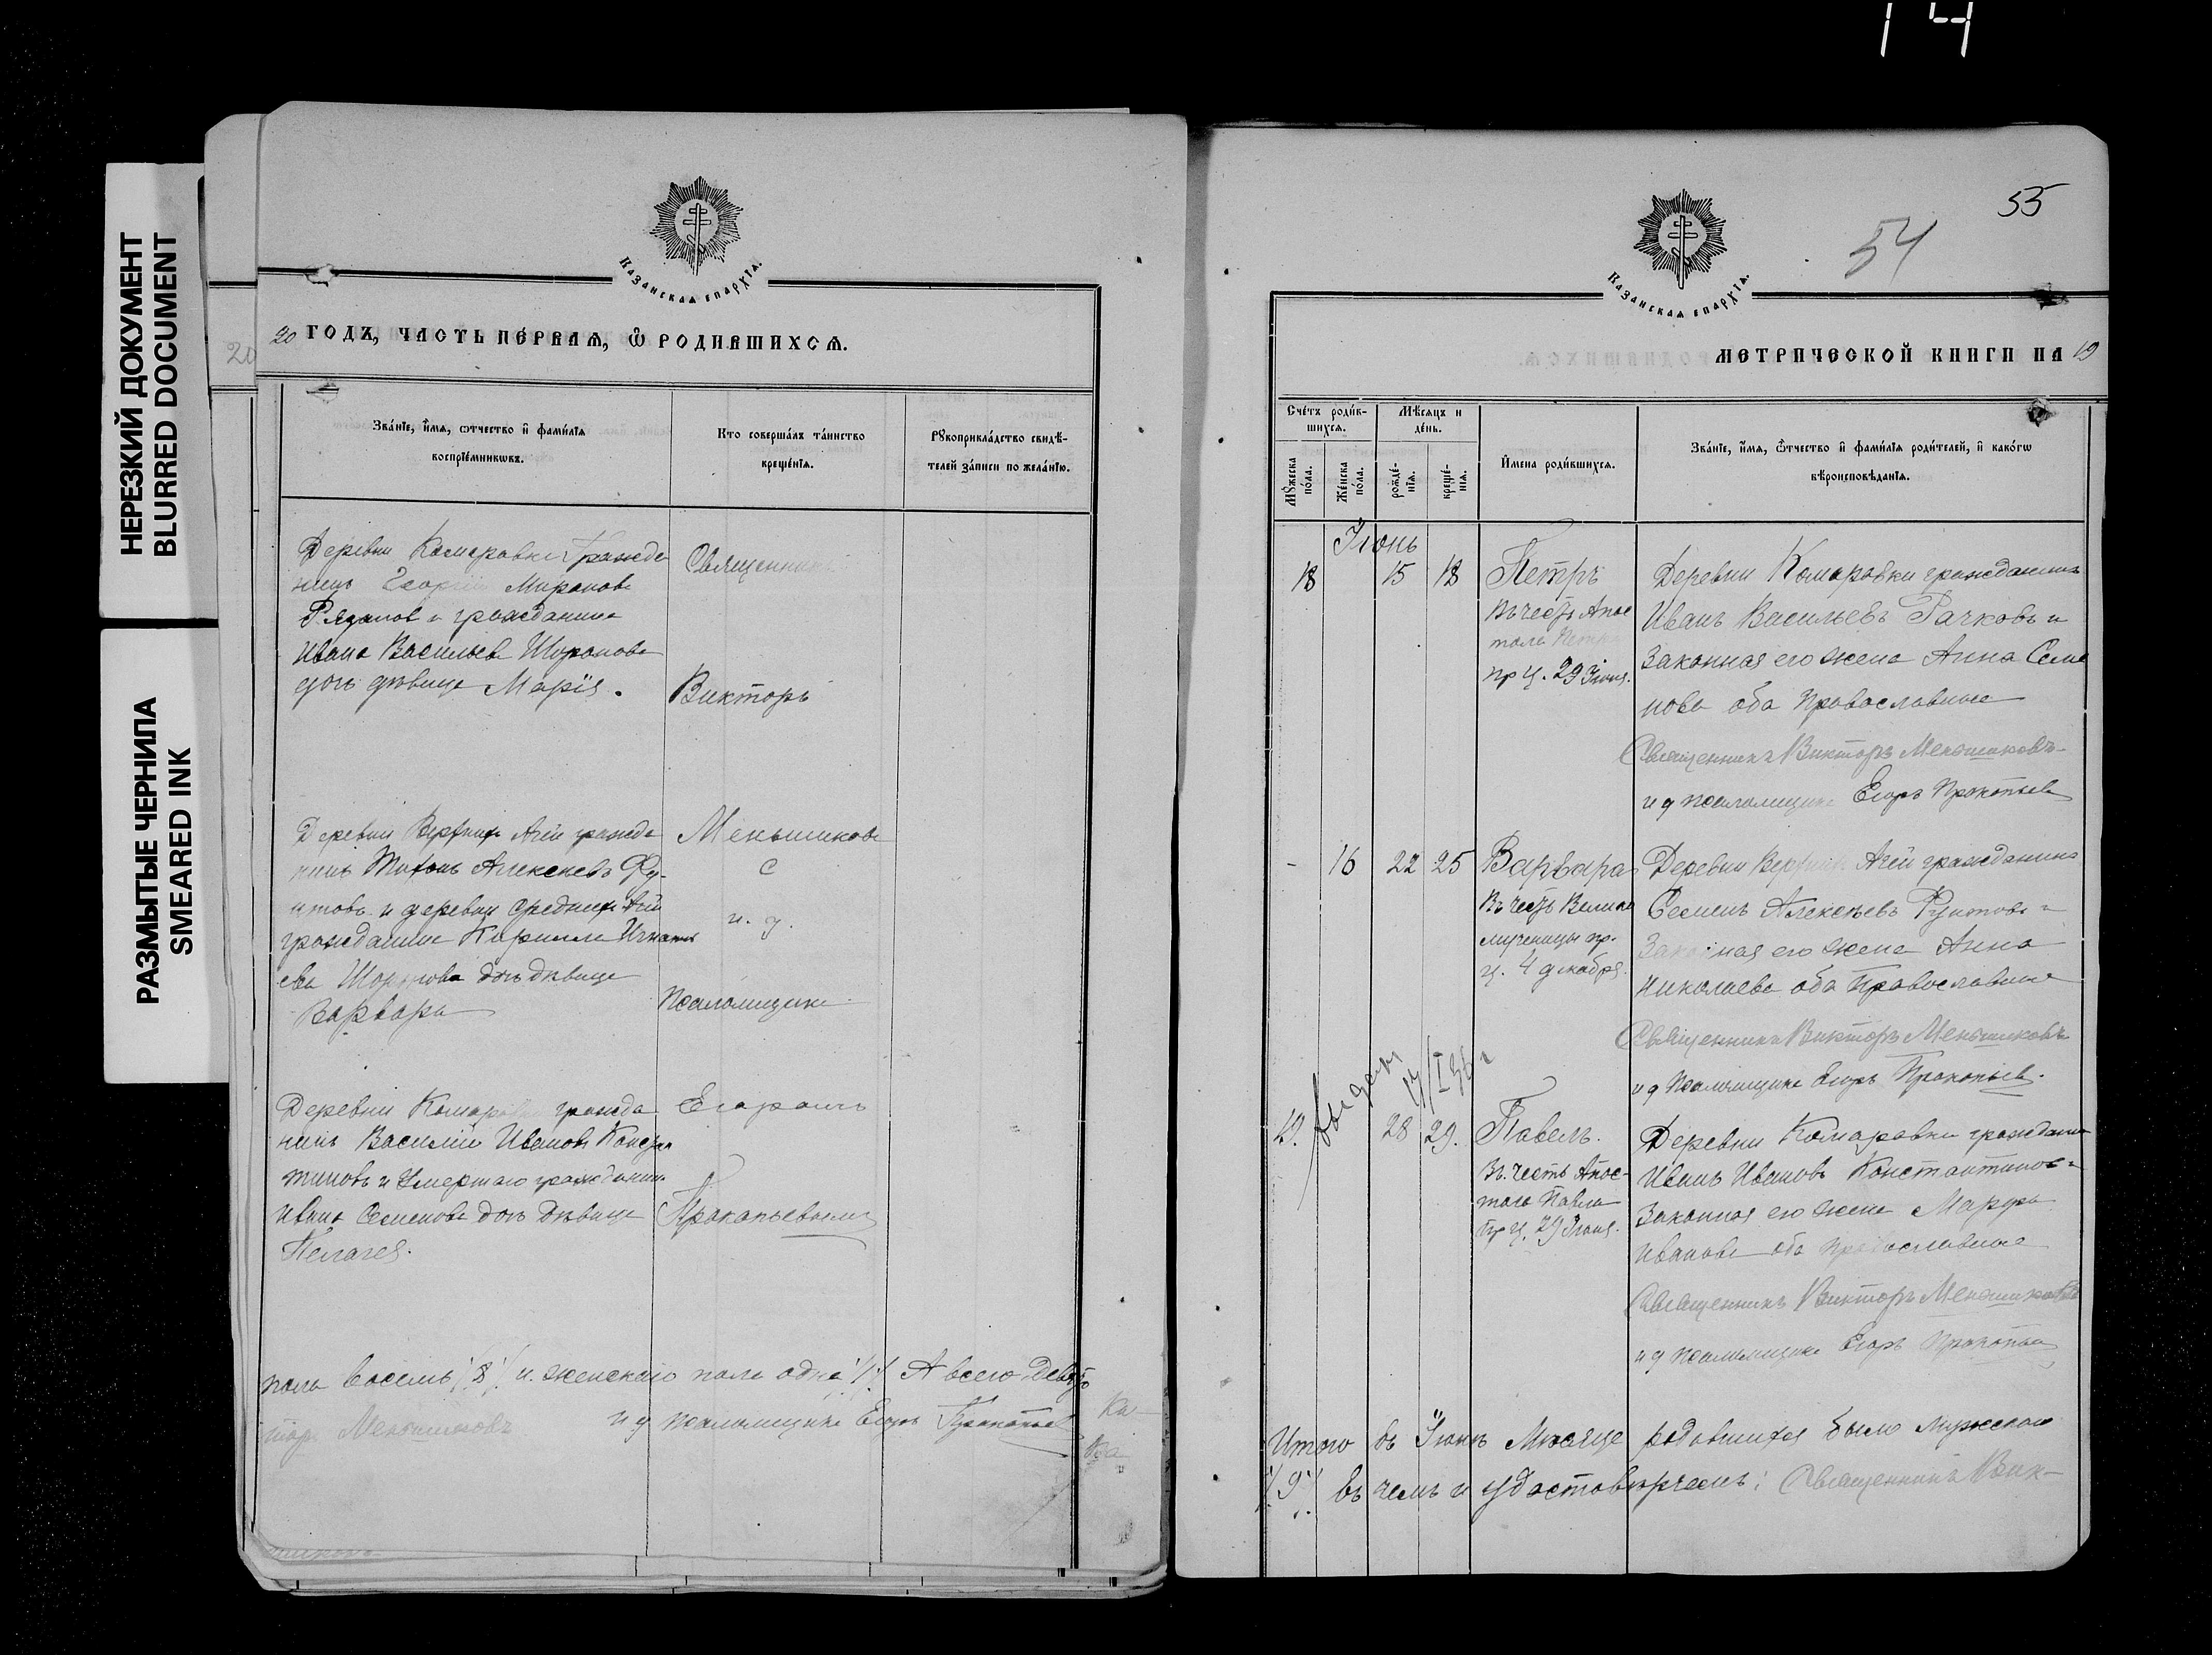 14
НЕРЕЗКИЙ ДОКУМЕНТ
BLURRED DOCUMENT
РАЗМЫТЫЕ ЧЕРНИЛА
SMEARED INK
Казанская епархїѧ.
20
20 ГОДЪ, ЧАСТЬ ПЕ́РВАѦ, Ѽ РОДИВШИХСѦ.
Зва́нїе, и҆́мѧ, ѻтчество и҆ фами́лїѧ
воспрїе́мникѡвъ.
Кто совершáлъ тáинство
крещéнїѧ.
Рꙋкоприклáдство свидѣ́-
телей зáписи по желáнїю.
Деревни Комаровки Гражда
нинъ Георгий Миронов
Рязанов и гражданина
Ивана Васильева Шоронова
дочь девица Марїя.
Священник
Викторъ
Деревни Верхних Ачей гражда
нинъ Тихонъ Алексеевъ Фу-
нтовъ и деревни Средних Ачей
гражданина Кирилла Игнать
ева дочь девица
Варвара
Меньшиковъ
с
и. д.
Псаломщика
Деревни Комаровки гражда
нинъ Василий Иванов Конста
тиновъ и Умершаго гражданина
Ивана Семенова дочь Девица
Пелагея.
Егоромъ
Прокопьевымъ
пола восемь /8/ и женскаго пола одна /1/ А всего Девять
тор Меньшиковъ и д псаломщика Егоръ Прокопьев
55
54
Казанская епархїѧ.
МЕТРИЧЕСКОЙ КНИГИ НА 19
Счéтъ роди́в-
шихсѧ.
Мѣ́сѧцъ и
дéнь.
Мꙋ́жеска
пóла.
Жéнска
пóла.
рождé-
нїѧ.
крещé-
нїѧ.
И҆мена роди́вшихсѧ.
Звáнїе, и҆́мѧ, ѻ҆́тчество и҆ фами́лїѧ роди́телей, и҆ какóгѡ
вѣроисповѣ́данїѧ.
Іюнь
18 15 18 Петръ
Въ честь Апос
тола Петра
пр ч. 29 Іюня.
Деревни Комаровки гражданинъ
Иванъ Васильевъ Рачковъ и
Законная его жена Анна Семе
нова оба Православные
Священникъ Викторъ Меньшиковъ
и д псаломщика Егоръ Прокопьев
- 16 22 25 Варвара
Въ честь Велико
мученицы пр.
ч. 4 декабря.
Деревни Верхних Ачей гражданинъ
Семенъ Алексѣевъ Фунтовъ и
Законная его жена Анна
Николаева оба Православные
Священникъ Викторъ Меньшиковъ
и д Псаломщика Егоръ Прокопьев.
19. 28 29. Павелъ.
Въ честь Апос-
тола Павла
пр ч. 29 Іюня.
Деревни Комаровки гражданинъ
Иванъ Ивановъ Константинов и
Законная его жена Марфа
Иванова оба православные
Священникъ Викторъ Меньшиковъ
и д псаломщика Егоръ Прокопьев
Итого въ Іюнѣ Мѣсяце родившихся было мужскаго
/9/ въ чемъ и удостовѣряемъ: Священникъ Вик-